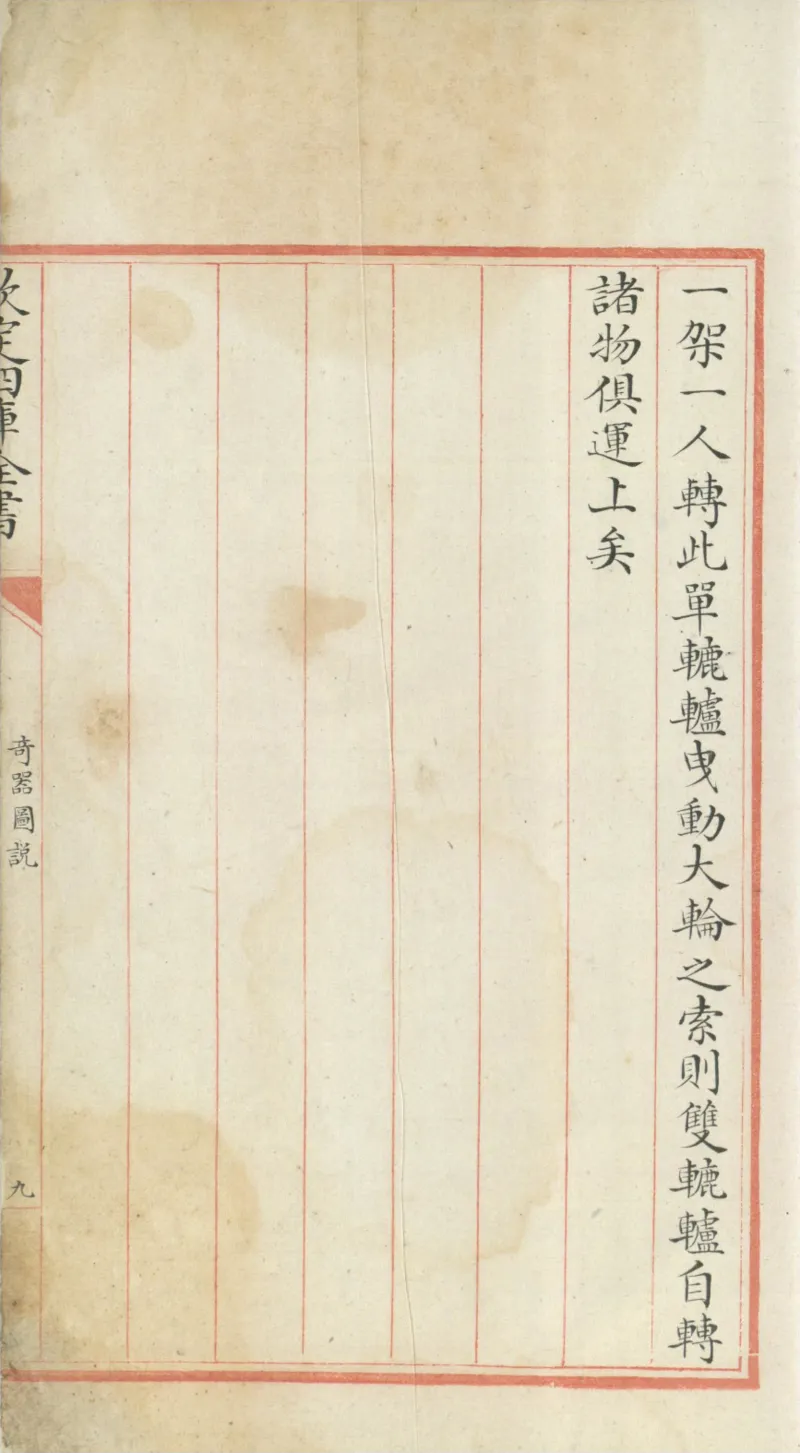 一架一人轉此單轆轤曳動大輪之索則雙轆轤自轉
諸物俱運上矣
欽定四庫全書
奇器圖說
九